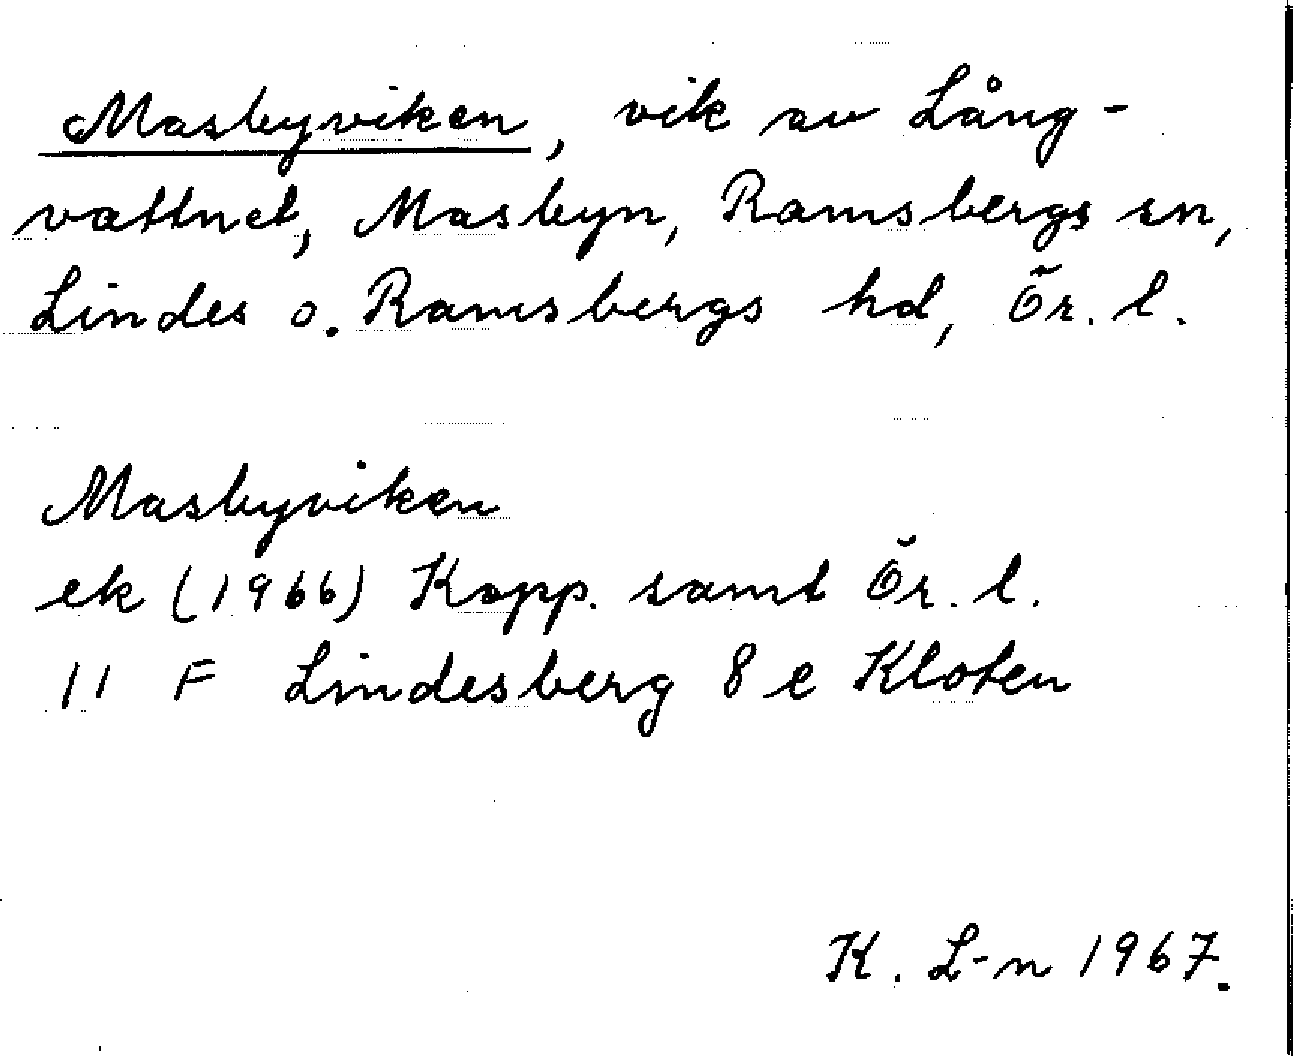 Masbyviken, vik av Lång-
vattnet, Masbyn, Ramsbergs sn,
Lindes o. Ramsbergs hd, Ör. l.
Masbyviken
ek (1966) Kopp. samt Ör. l.
11 F Lindesberg 8 e Kloten
K. L-n 1967.